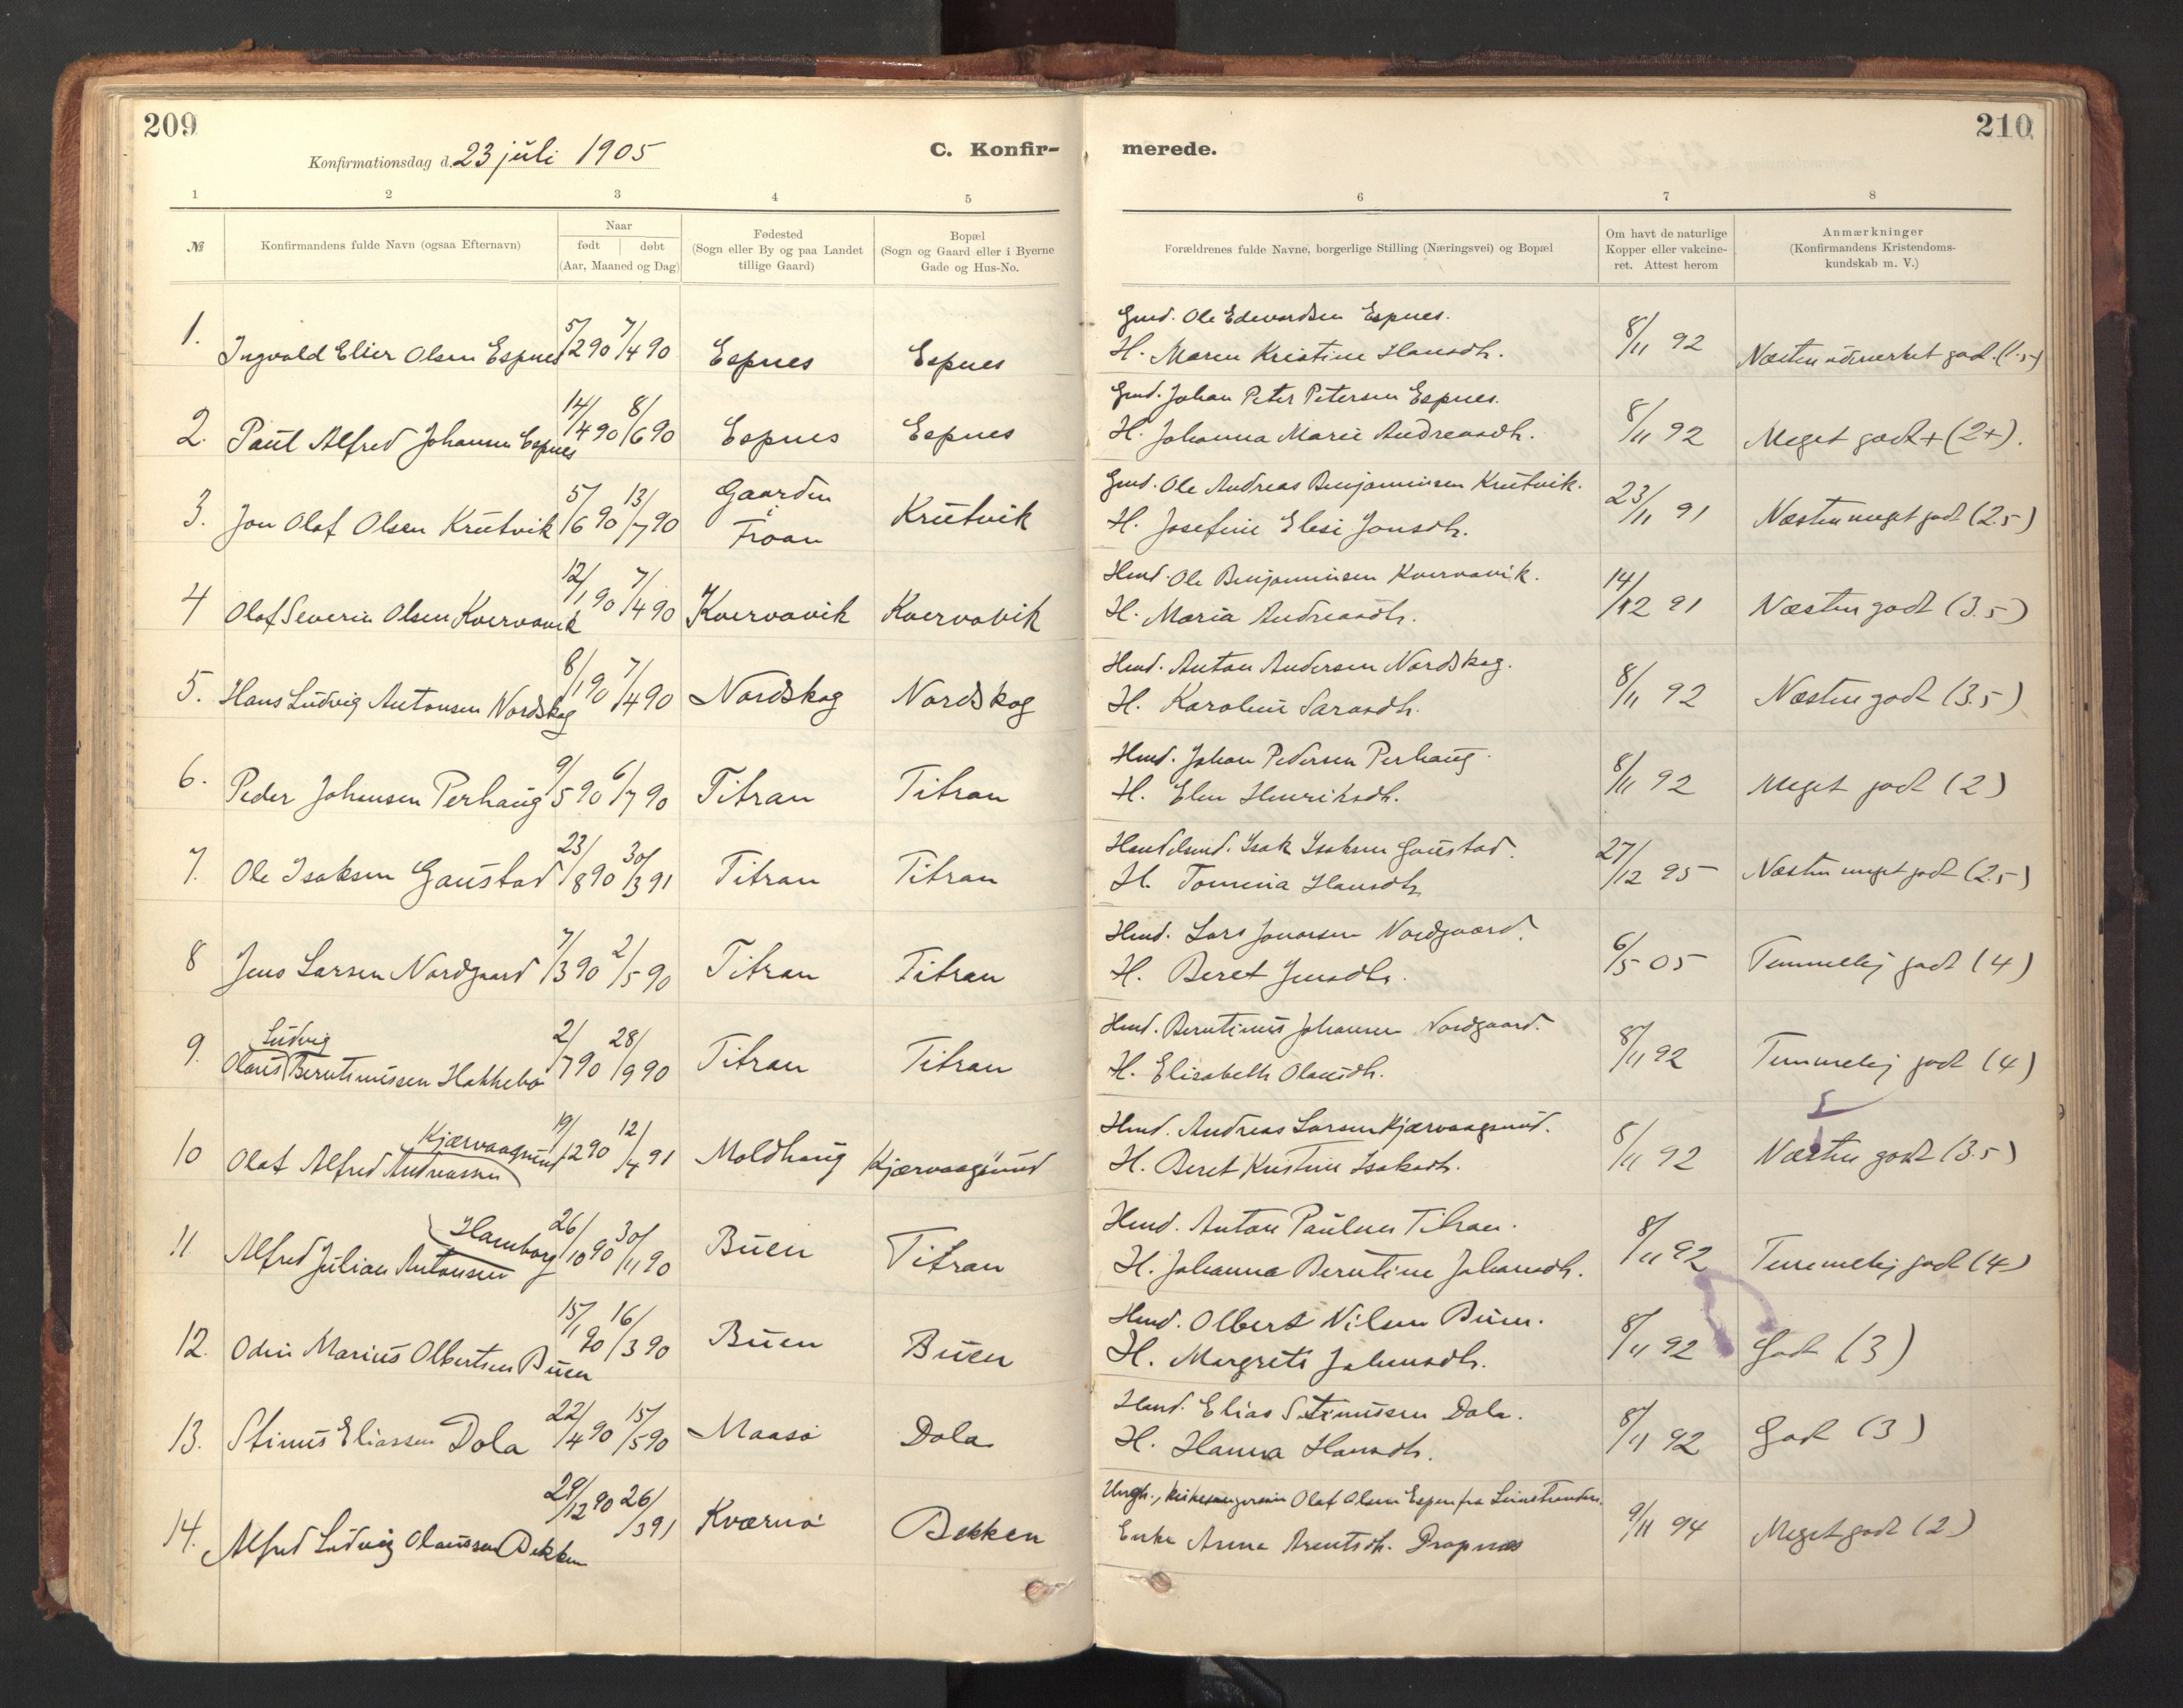 209
Konfirmationsdag d. 23 juli 1905
C. Konfir-
1 2 3 4 5
№
Konfirmandens fulde Navn (ogsaa Efternavn)
Naar
født døbt
(Aar, Maaned og Dag)
Fødested
(Sogn eller By og paa Landet
tillige Gaard)
Bopæl
(Sogn og Gaard eller i Byerne
Gade og Hus-No.
210
merede.
6 7 8
Forældrenes fulde Navne, borgerlige Stilling (Næringsvei) og Bopæl
Om havt de naturlige
Kopper eller vakcine-
ret. Attest herom
Anmærkninger
(Konfirmandens Kristendoms-
kundskab m. V.)
1. Ingvald Elier Olsen Espnes 5/2 90 7/4 90 Espnes Espnes
Gmd. Ole Edvardsen Espnes.
H. Maren Kristine Hansdh. 8/11 92 Næsten udmerket godt. (1.5)
2. Paul Alfred Johansen Espnes 14/4 90 8/6 90 Espnes Espnes
Gmd. Johan Peter Petersen Espnes.
H. Johanna Marie Andreasdh. 8/11 92 Meget godt+ (2+).
3. Jon Olaf Olsen Krutvik 5/6 90 13/7 90 Gaarden i Froan Krutvik
Gmd. Ole Andreas Benjaminsen Krutvik.
H. Josefine Elesi Jonsdh. 23/11 91 Næsten meget godt (2.5)
4 Olaf Severin Olsen Kvervavik 12/1 90 7/4 90 Kvervavik Kvervavik
Hmd. Ole Benjaminsen Kvervavik.
H. Maria Andreasdh. 14/12 91 Næsten godt (3.5)
5. Hans Ludvig Antonsen Nordskog 8/1 90 7/4 90 Nordskog Nordskog
Hmd. Anton Andersen Nordskog.
H. Karoline Sarasdh. 8/11 92 Næsten godt (3.5)
6. Peder Johansen Perhaug 9/5 90 6/7 90 Titran Titran
Hmd. Johan Pedersen Perhaug.
H. Elen Henriksdh. 8/11 92 Meget godt (2)
7. Ole Isaksen Gaustad 23/8 90 30/3 91 Titran Titran
Handelsmd. Isak Isaksen Gaustad.
H. Tomina Hansdh 27/12 95 Næsten meget godt (2.5)
8 Jens Larsen Nordgaard 7/3 90 2/5 90 Titran Titran
Hmd. Lars Jonassen Nordgaard.
H. Beret Jensdh. 6/5 05 Temmelig godt (4)
9. Olaus Ludvig Berntinussen Hakkebo 2/7 90 28/9 90 Titran Titran
Hmd. Berntinus Johansen Nordgaard.
H. Elisabeth Olausdh. 8/11 92 Temmelig godt (4)
10 Olaf Alfred Andreassen Kjærvaagsund 19/12 90 12/4 91 Moldhaug Kjærvaagsund
Hmd. Andreas Larsen Kjærvaagsund.
H. Beret Kristine Isaksdh. 8/11 92 Næsten godt (3.5)
11 Alfred Julian Antonsen Hamborg 26/10 90 30/11 90 Buen Titran
Hmd. Anton Paulsen Titran.
H. Johanna Berntine Johansdh. 8/11 92 Temmelig godt (4)
12. Odin Marius Olbertsen Buen 15/1 90 16/3 90 Buen Buen
Hmd. Olbert Nilsen Buen.
H. Margrete Johansdh. 8/11 92 Godt (3)
13. Stinus Eliassen Dola 22/4 90 15/5 90 Maasø Dola
Hmd. Elias Stinussen Dola.
H. Hanna Hansdh. 8/11 92 Godt (3)
14. Alfred Ludvig Olaussen Bekken 29/12 90 26/3 91 Kværnø Bekken
Ungk., Kirkesangersøn Olaf Olsen Espen fra Leinstranden.
Enke Anna Arentsdh. Dragsnes 9/11 94 Meget godt (2)